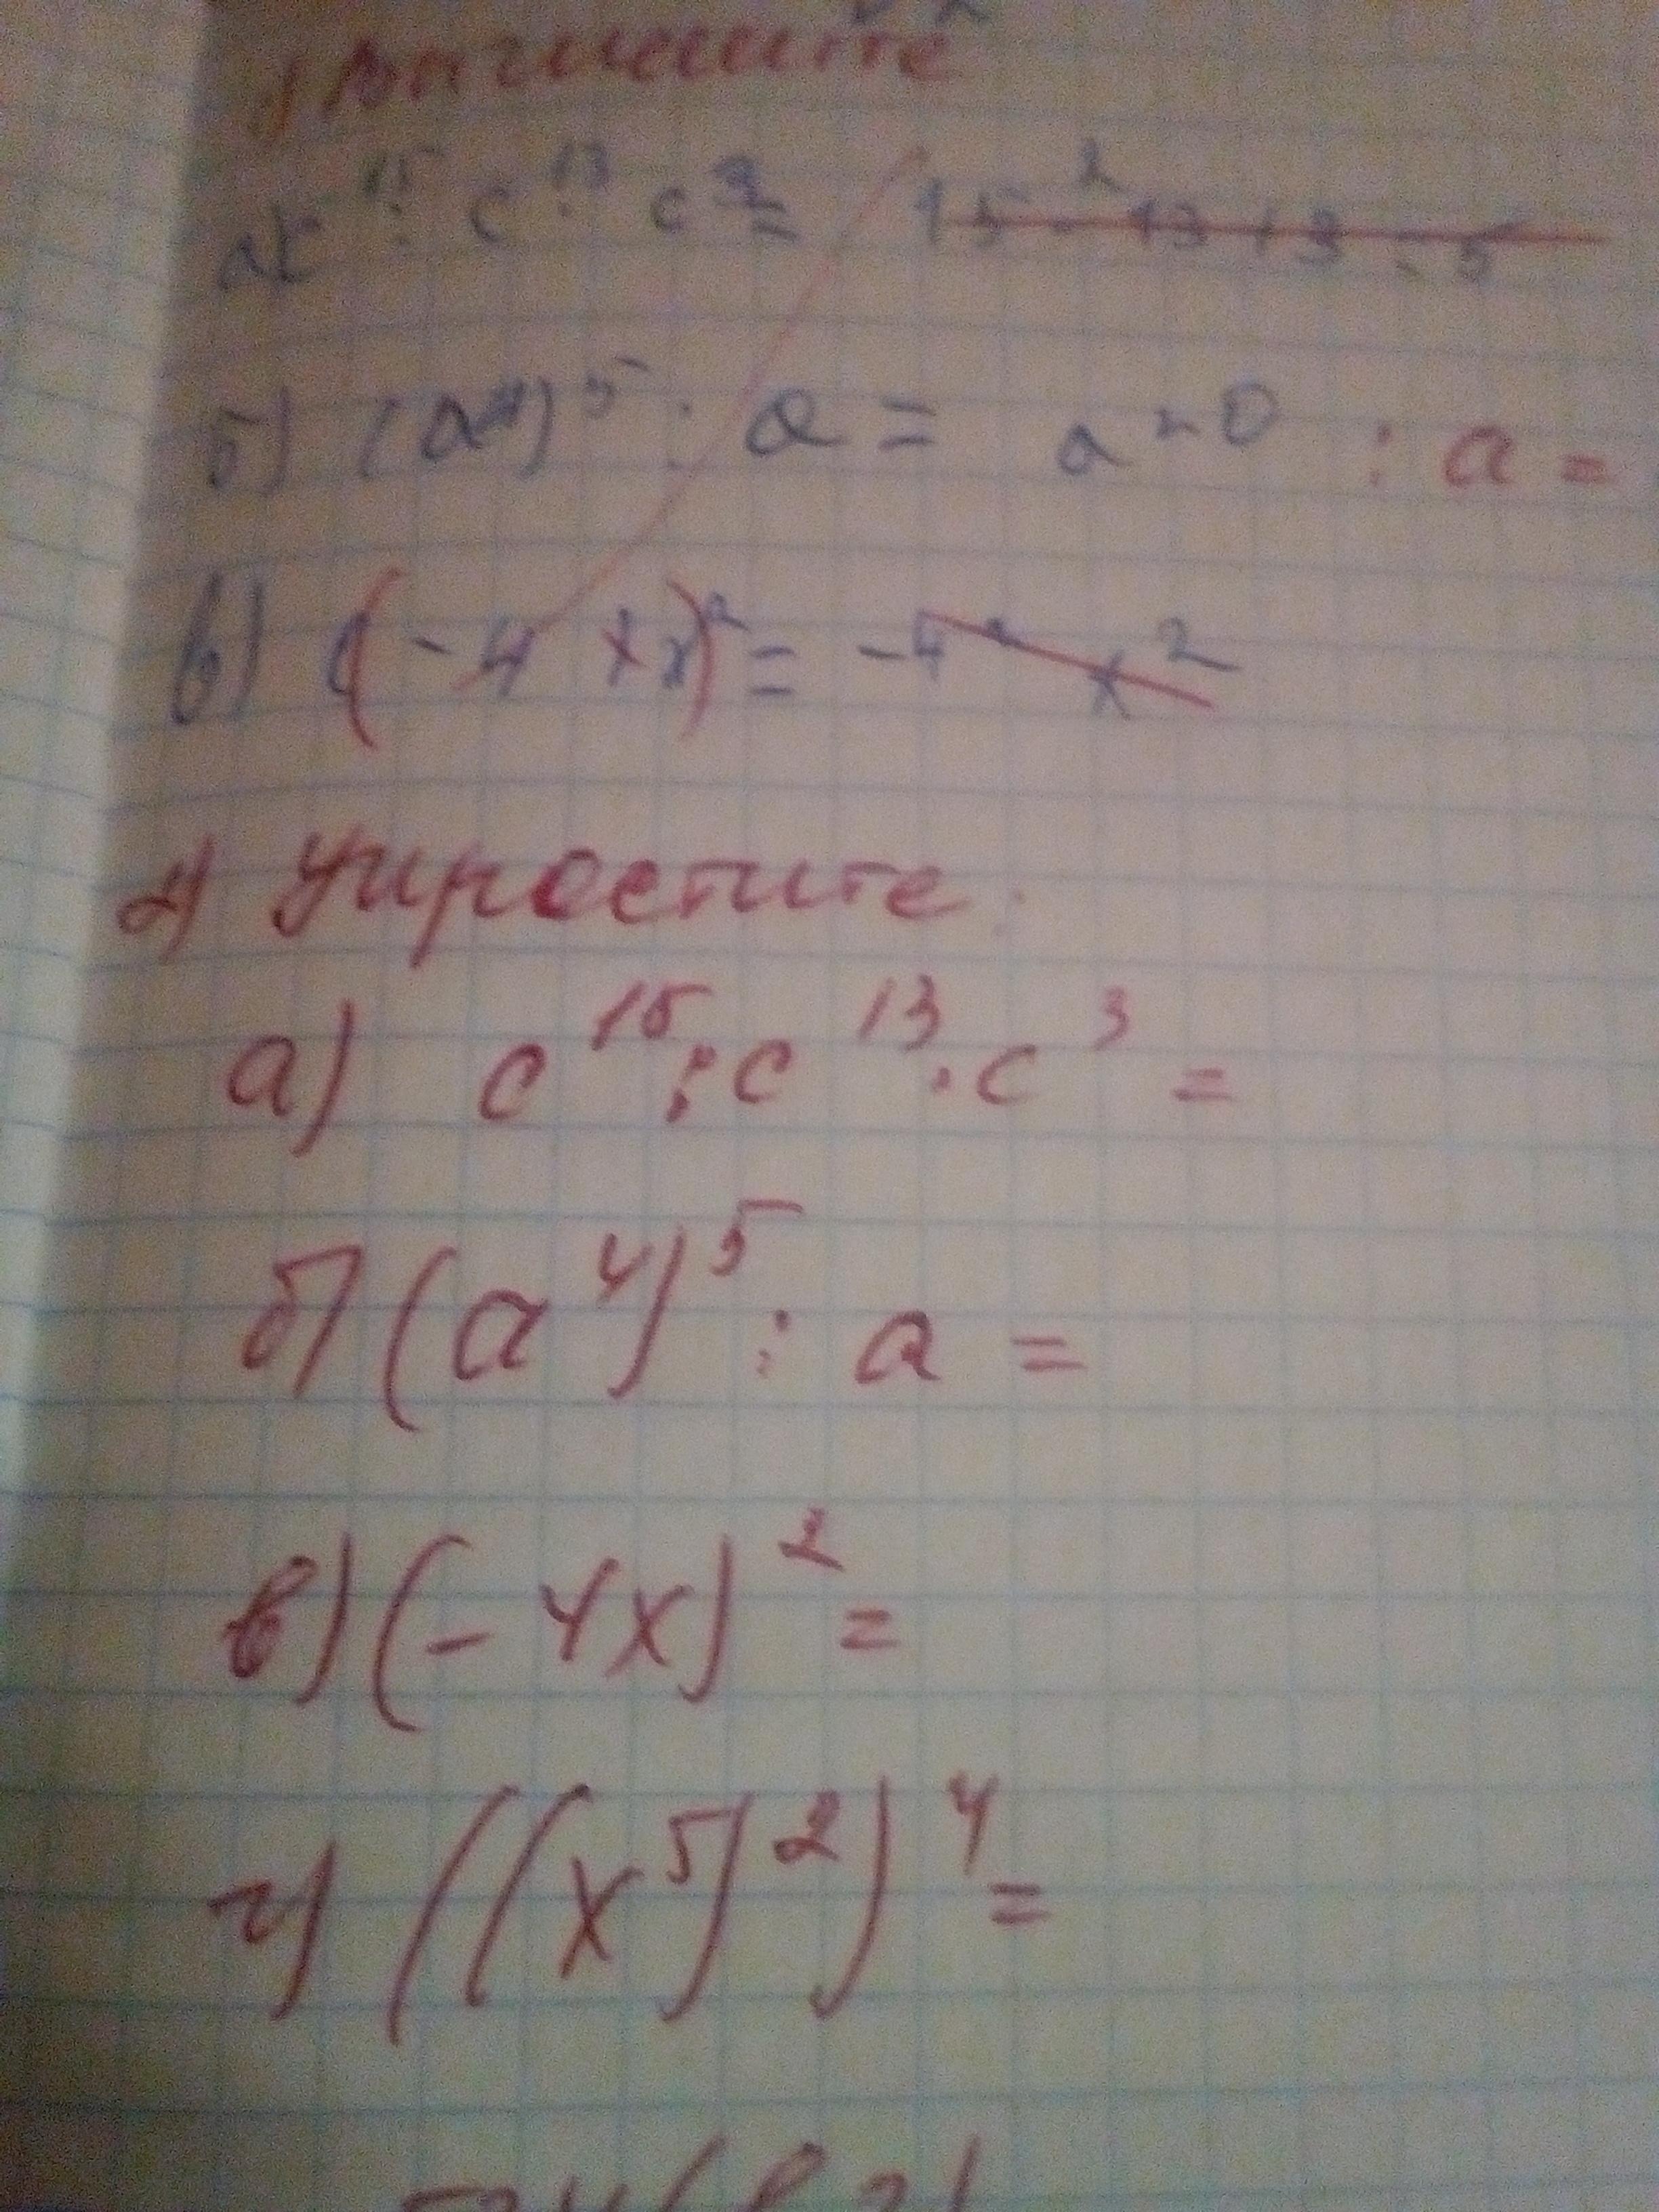 а) c¹⁵ : c¹³ · c³ =
б) (a⁴)⁵ : a = a²⁰ : a =
в) (-4 x)² = -4² x²
2) Упростите.
а) c¹⁵ : c¹³ · c³ =
б) (a⁴)⁵ : a =
в) (-4x)² =
г) ((x⁵)²)⁴ =